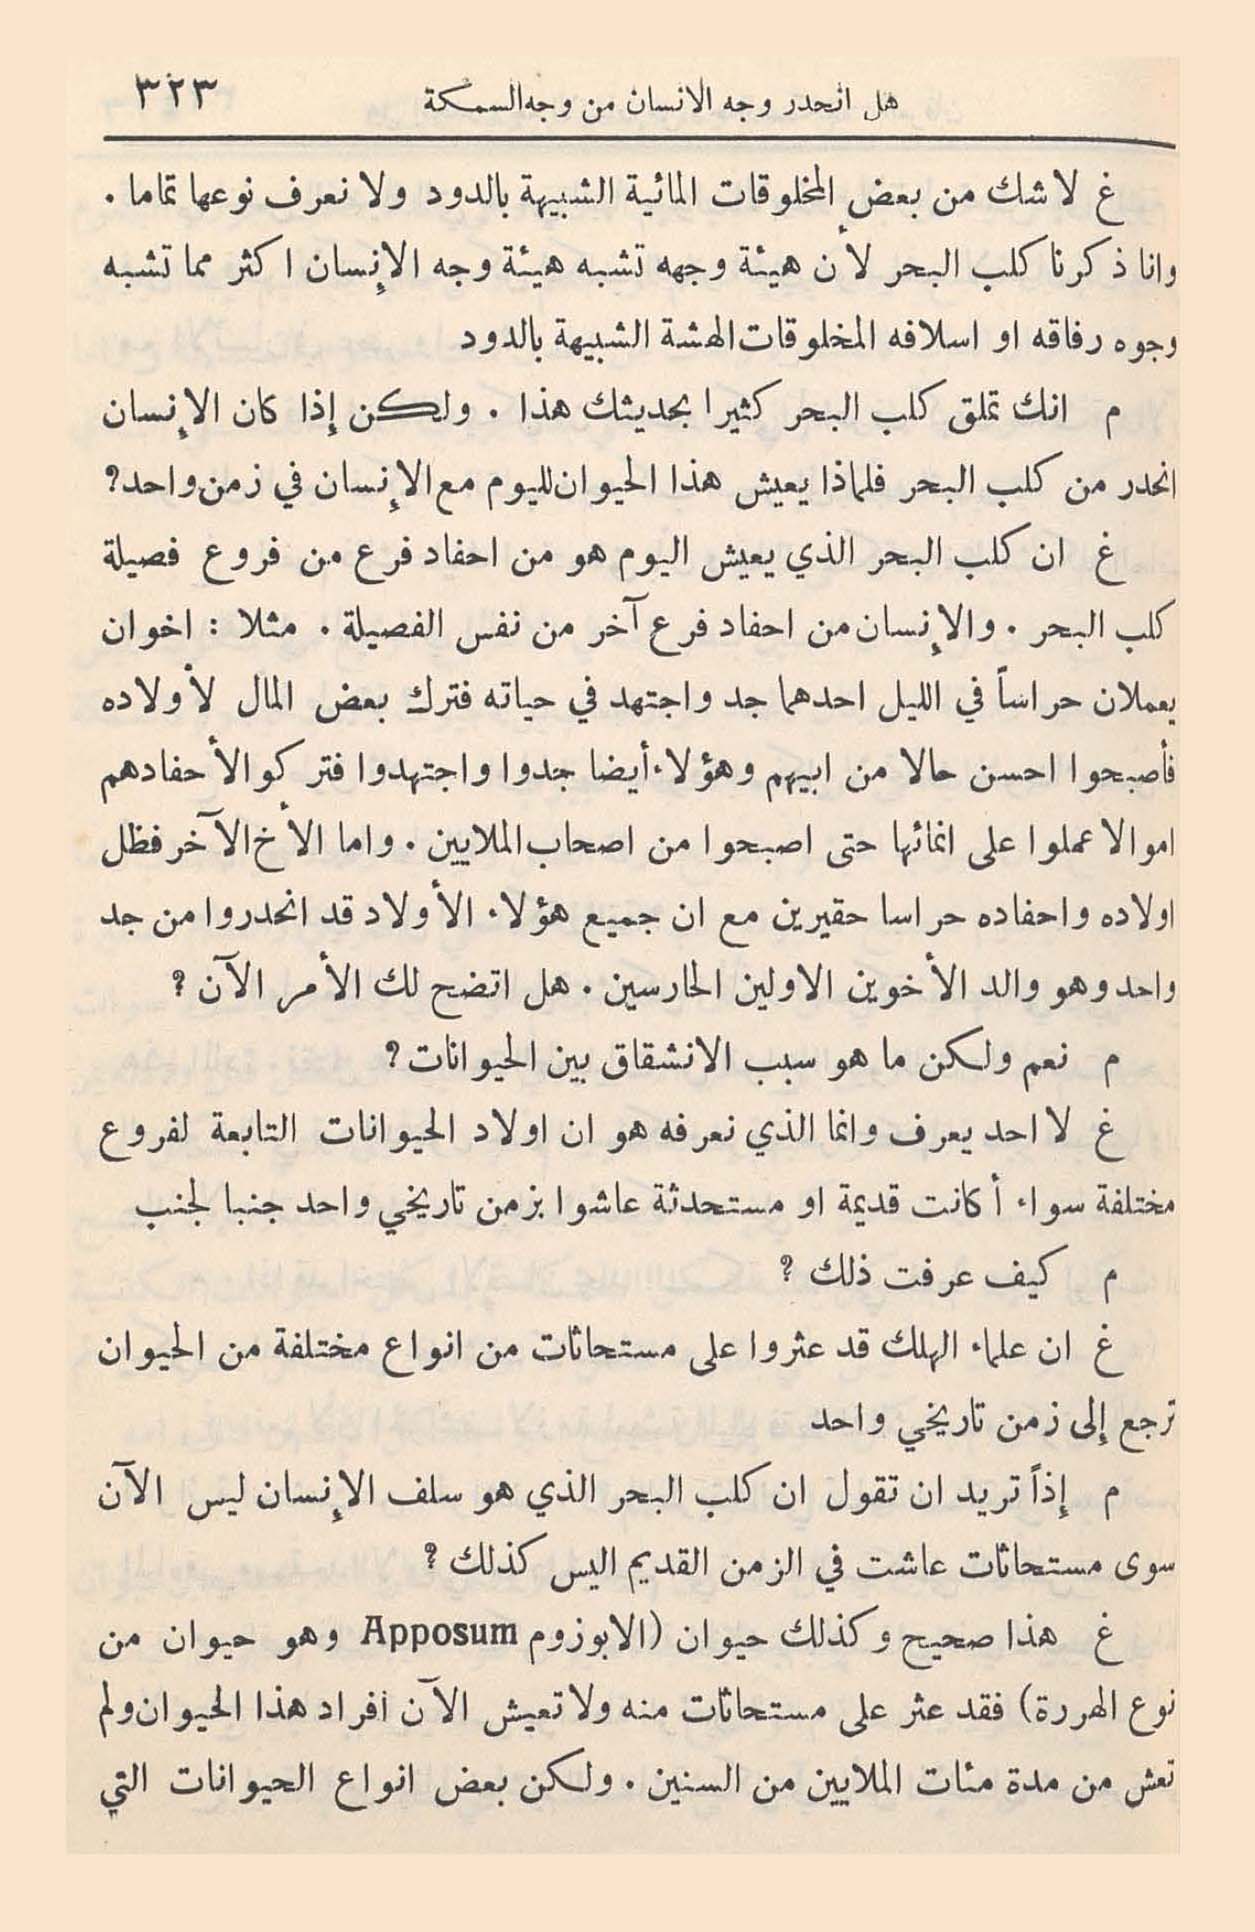 هل انحدر وجه الانسان من وجه السمكة ٣٢٣
غ لا شك من بعض المخلوقات المائية الشبيهة بالدود ولا نعرف نوعها تماما .
وانا ذكرنا كلب البحر لأن هيئة وجهه تشبه هيئة وجه الإنسان اكثر مما تشبه
وجوه رفاقه او اسلافه المخلوقات الهشة الشبيهة بالدود
م انك تملق كلب البحر كثيرا بحديثك هذا . ولكن إذا كان الإنسان
انحدر من كلب البحر فلماذا يعيش هذا الحيوان لليوم مع الإنسان في زمن واحد؟
غ ان كلب البحر الذي يعيش اليوم هو من احفاد فرع من فروع فصيلة
كلب البحر . والإنسان من احفاد فرع آخر من نفس الفصيلة . مثلا : اخوان
يعملان حراساً في الليل احدهما جد واجتهد في حياته فترك بعض المال لأولاده
فأصبحوا احسن حالا من ابيهم وهؤلاء أيضا جدوا واجتهدوا فتركوالأحفادهم
اموالا عملوا على انمائها حتى اصبحوا من اصحاب الملايين . واما الأخ الآخر فظل
اولاده واحفاده حراسا حقيرين مع ان جميع هؤلاء الأولاد قد انحدروا من جد
واحد وهو والد الأخوين الاولين الحارسين . هل اتضح لك الأمر الآن ؟
م نعم ولكن ما هو سبب الانشقاق بين الحيوانات ؟
غ لا احد يعرف وانما الذي نعرفه هو ان اولاد الحيوانات التابعة لفروع
مختلفة سواء أكانت قديمة او مستحدثة عاشوا بزمن تاريخي واحد جنبا لجنب
م كيف عرفت ذلك ؟
غ ان علماء الهلك قد عثروا على مستحاثات من انواع مختلفة من الحيوان
ترجع إلى زمن تاريخي واحد
م إذاً تريد ان تقول ان كلب البحر الذي هو سلف الإنسان ليس الآن
سوى مستحاثات عاشت في الزمن القديم اليس كذلك ؟
غ هذا صحيح وكذلك حيوان (الابوزوم Apposum وهو حيوان من
نوع الهررة) فقد عثر على مستحاثات منه ولا تعيش الآن أفراد هذا الحيوان ولم
تعش من مدة مئات الملايين من السنين . ولكن بعض انواع الحيوانات التي